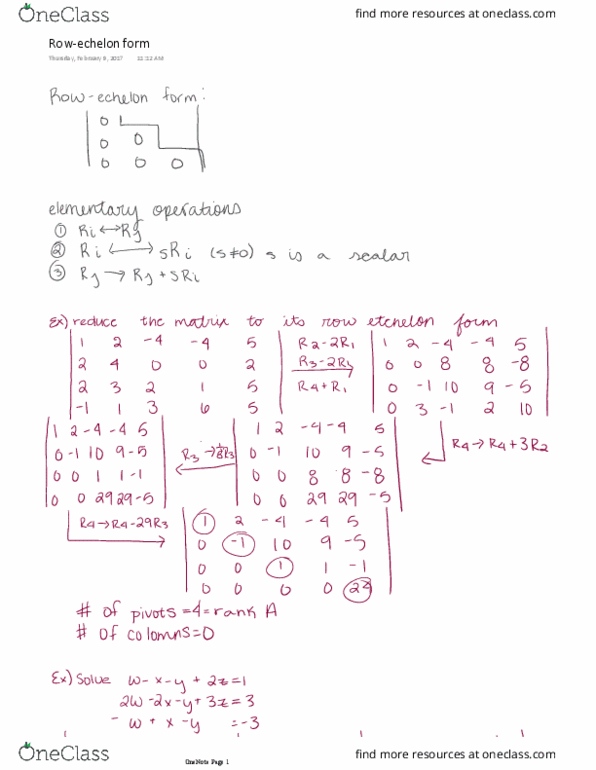 OneClass
find more resources at oneclass.com
Row-echelon form
Thursday, February 9, 2017 11:32 AM
Row-echelon form:
0 1
0 0
0 0 0
elementary operations
① Ri ↔ Rj
② Ri ↔ sRi (s≠0) s is a scalar
③ Rj → Rj + sRi
Ex) reduce the matrix to its row etchelon form
1 2 -4 -4 5
2 4 0 0 2
2 3 2 1 5
-1 1 3 6 5
R2-2R1
R3-2R1
R4+R1
1 2 -4 -4 5
0 0 8 8 -8
0 -1 10 9 -5
0 3 -1 2 10
R4 → R4+3R2
1 2 -4 -4 5
0 -1 10 9 -5
0 0 8 8 -8
0 0 29 29 -5
R3 → 1/8 R3
1 2 -4 -4 5
0 -1 10 9 -5
0 0 1 1 -1
0 0 29 29 -5
R4→R4-29R3
1 2 -4 -4 5
0 -1 10 9 -5
0 0 1 1 -1
0 0 0 0 24
# of pivots =4= rank A
# of colomns=0
Ex) Solve w-x-y+2z=1
2w-2x-y+3z=3
-w+x-y =-3
OneClass
OneNote Page 1
find more resources at oneclass.com